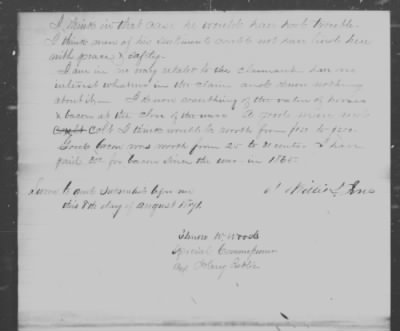 I think in that case he would have had trouble.
I think men of his sentiments could not have lived here
with peace & safety.
I am in no way related to the claimant have no
interest whatever in the claim and know nothing
about it. I know something of the value of horses
& bacon at the close of the war. A good mare and
colt I think would be worth from
Good bacon was worth from 20 to 25 cents. I have
paid 20c for bacon since the war in 1865.
Sworn to and Subscribed before me
this 8th day of August 1871.
Elenore W. Woods
Special Commissioner